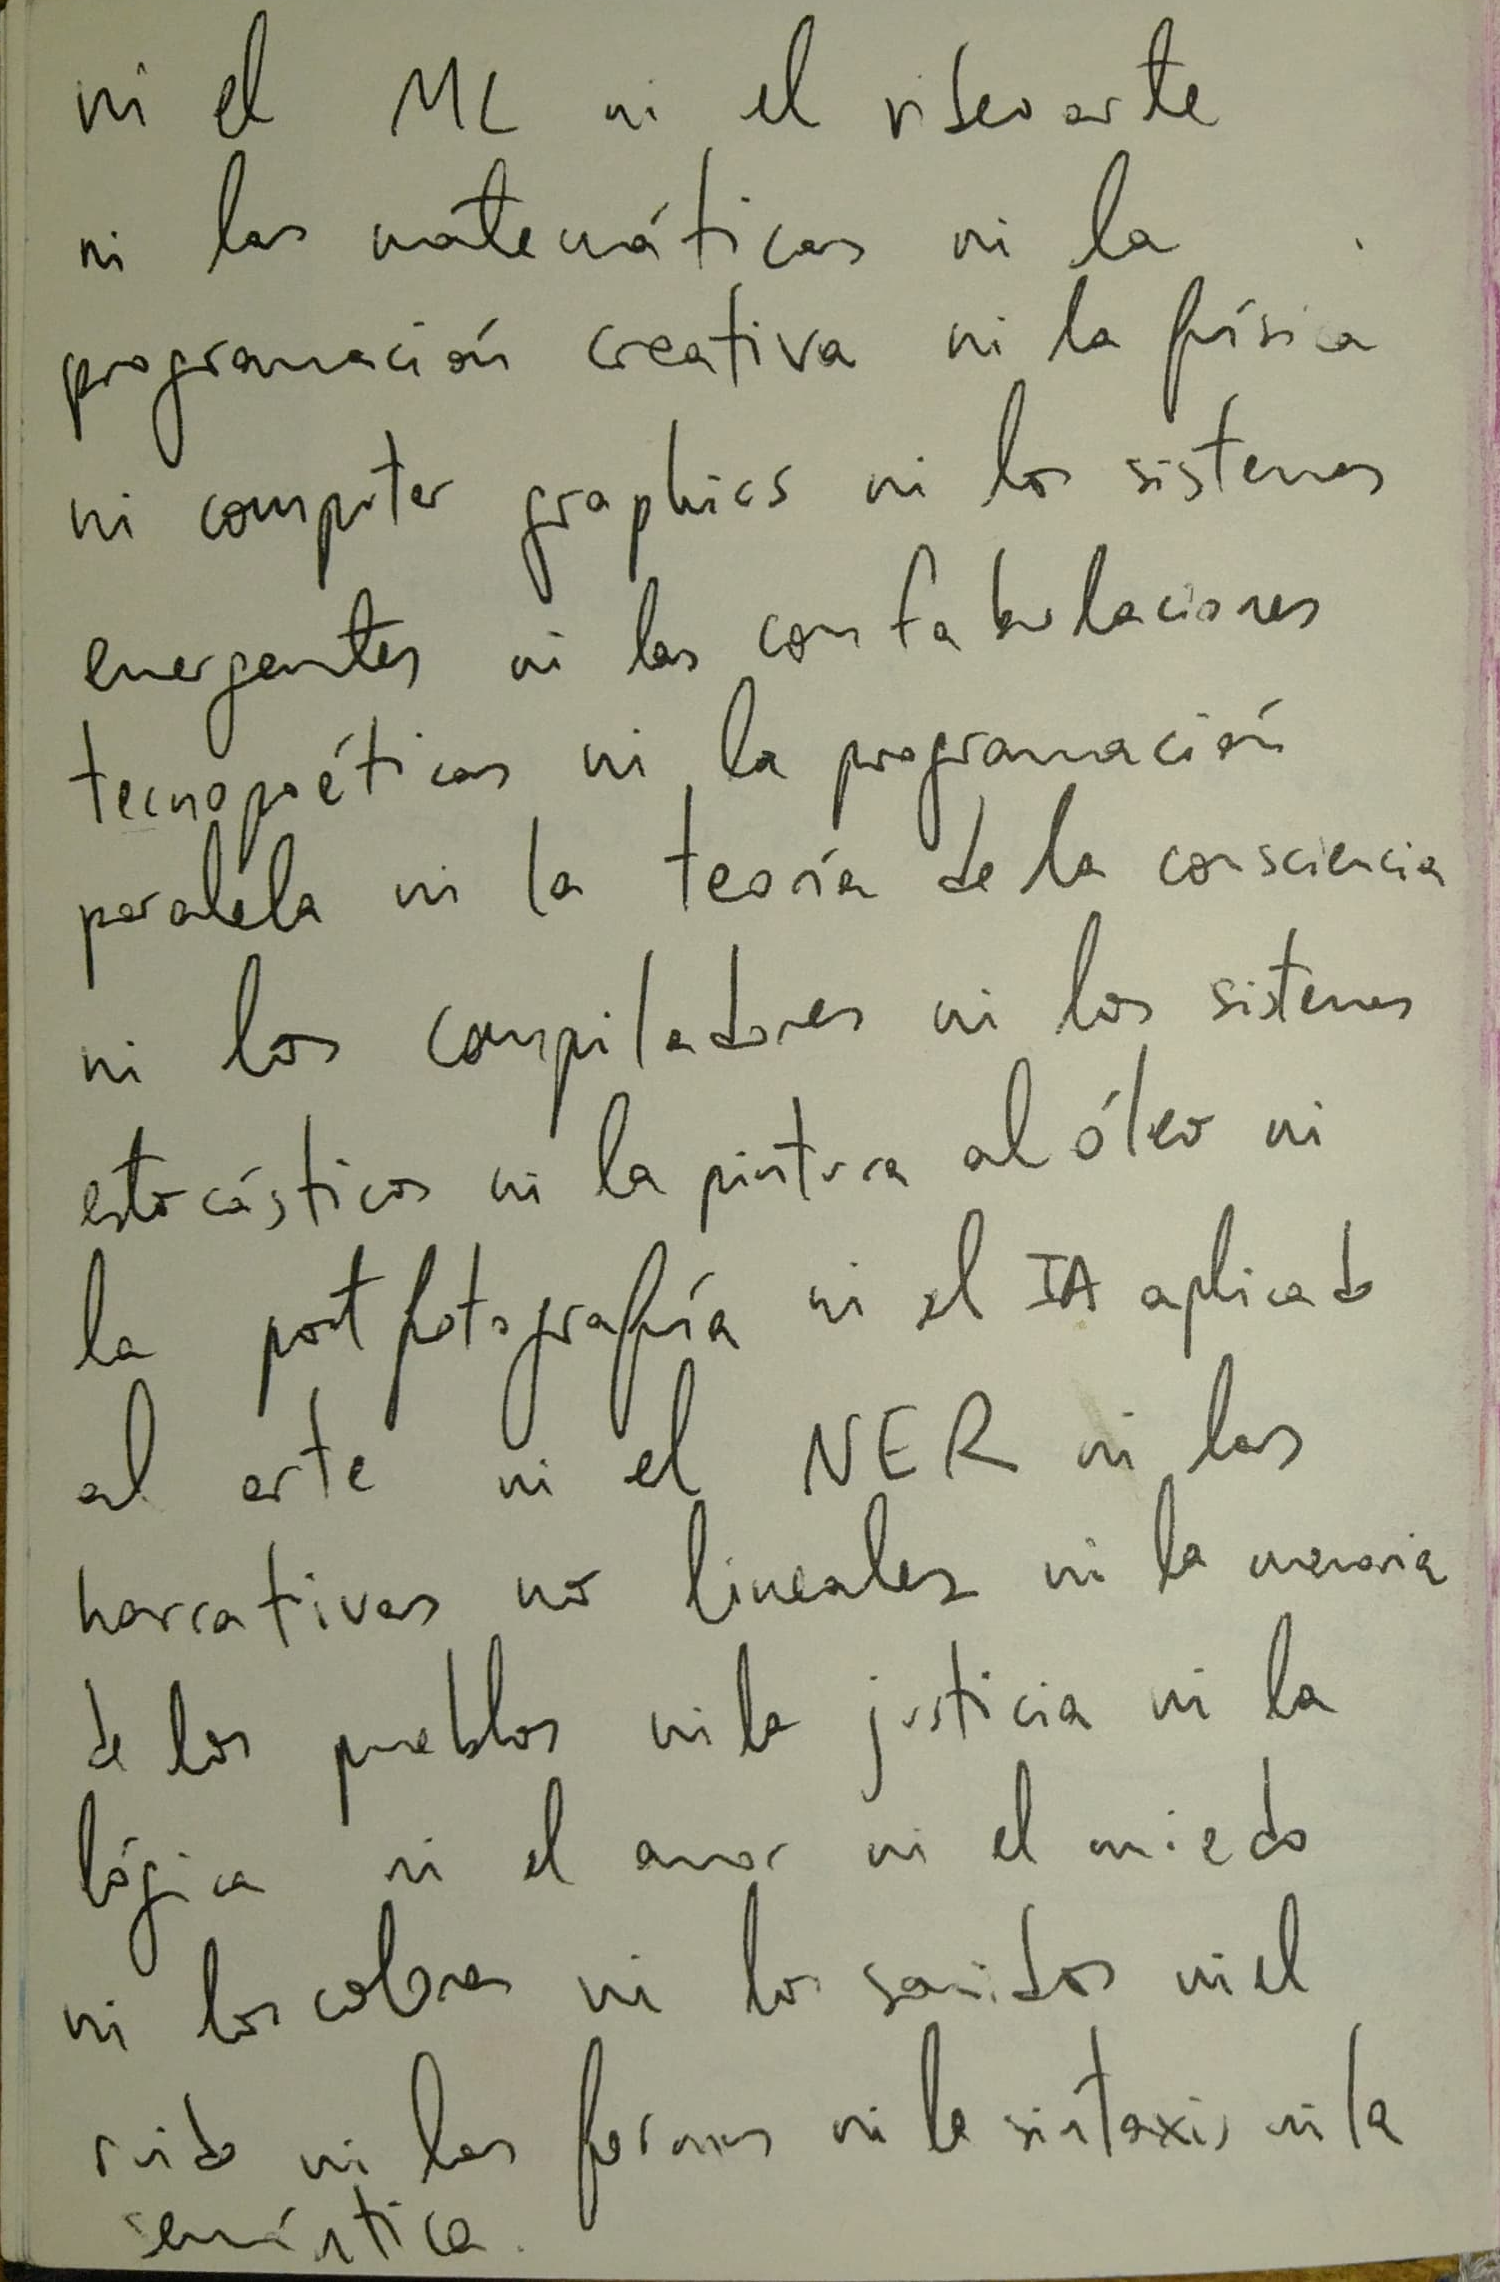 ni el ML ni el videoarte
ni las matemáticas ni la
programación creativa ni la física
ni computer graphics ni los sistemas
emergentes ni las confabulaciones
tecnopoéticas ni la programación
paralela ni la teoría de la consciencia
ni los compiladores ni los sistemas
estocásticos ni la pintura al óleo ni
la postfotografía ni el IA aplicado
al arte ni el NER ni las
narrativas no lineales ni la memoria
de los pueblos ni la justicia ni la
lógica ni el amor ni el miedo
ni los colores ni los sonidos ni el
ruido ni las formas ni la sintaxis ni la
semántica.